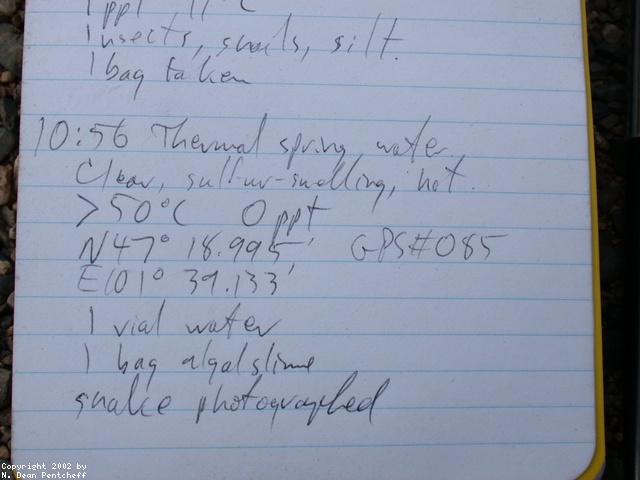 1 ppt 11°C
Insects, snails, silt.
1 bag taken
10:56 Thermal spring, water
Clear, sulfur-smelling, hot.
>50°C 0ppt
N47° 18.995' GPS#085
E101° 39.133'
1 vial water
1 bag algal slime
snake photographed
Copyright 2002 by
N. Dean Pentcheff